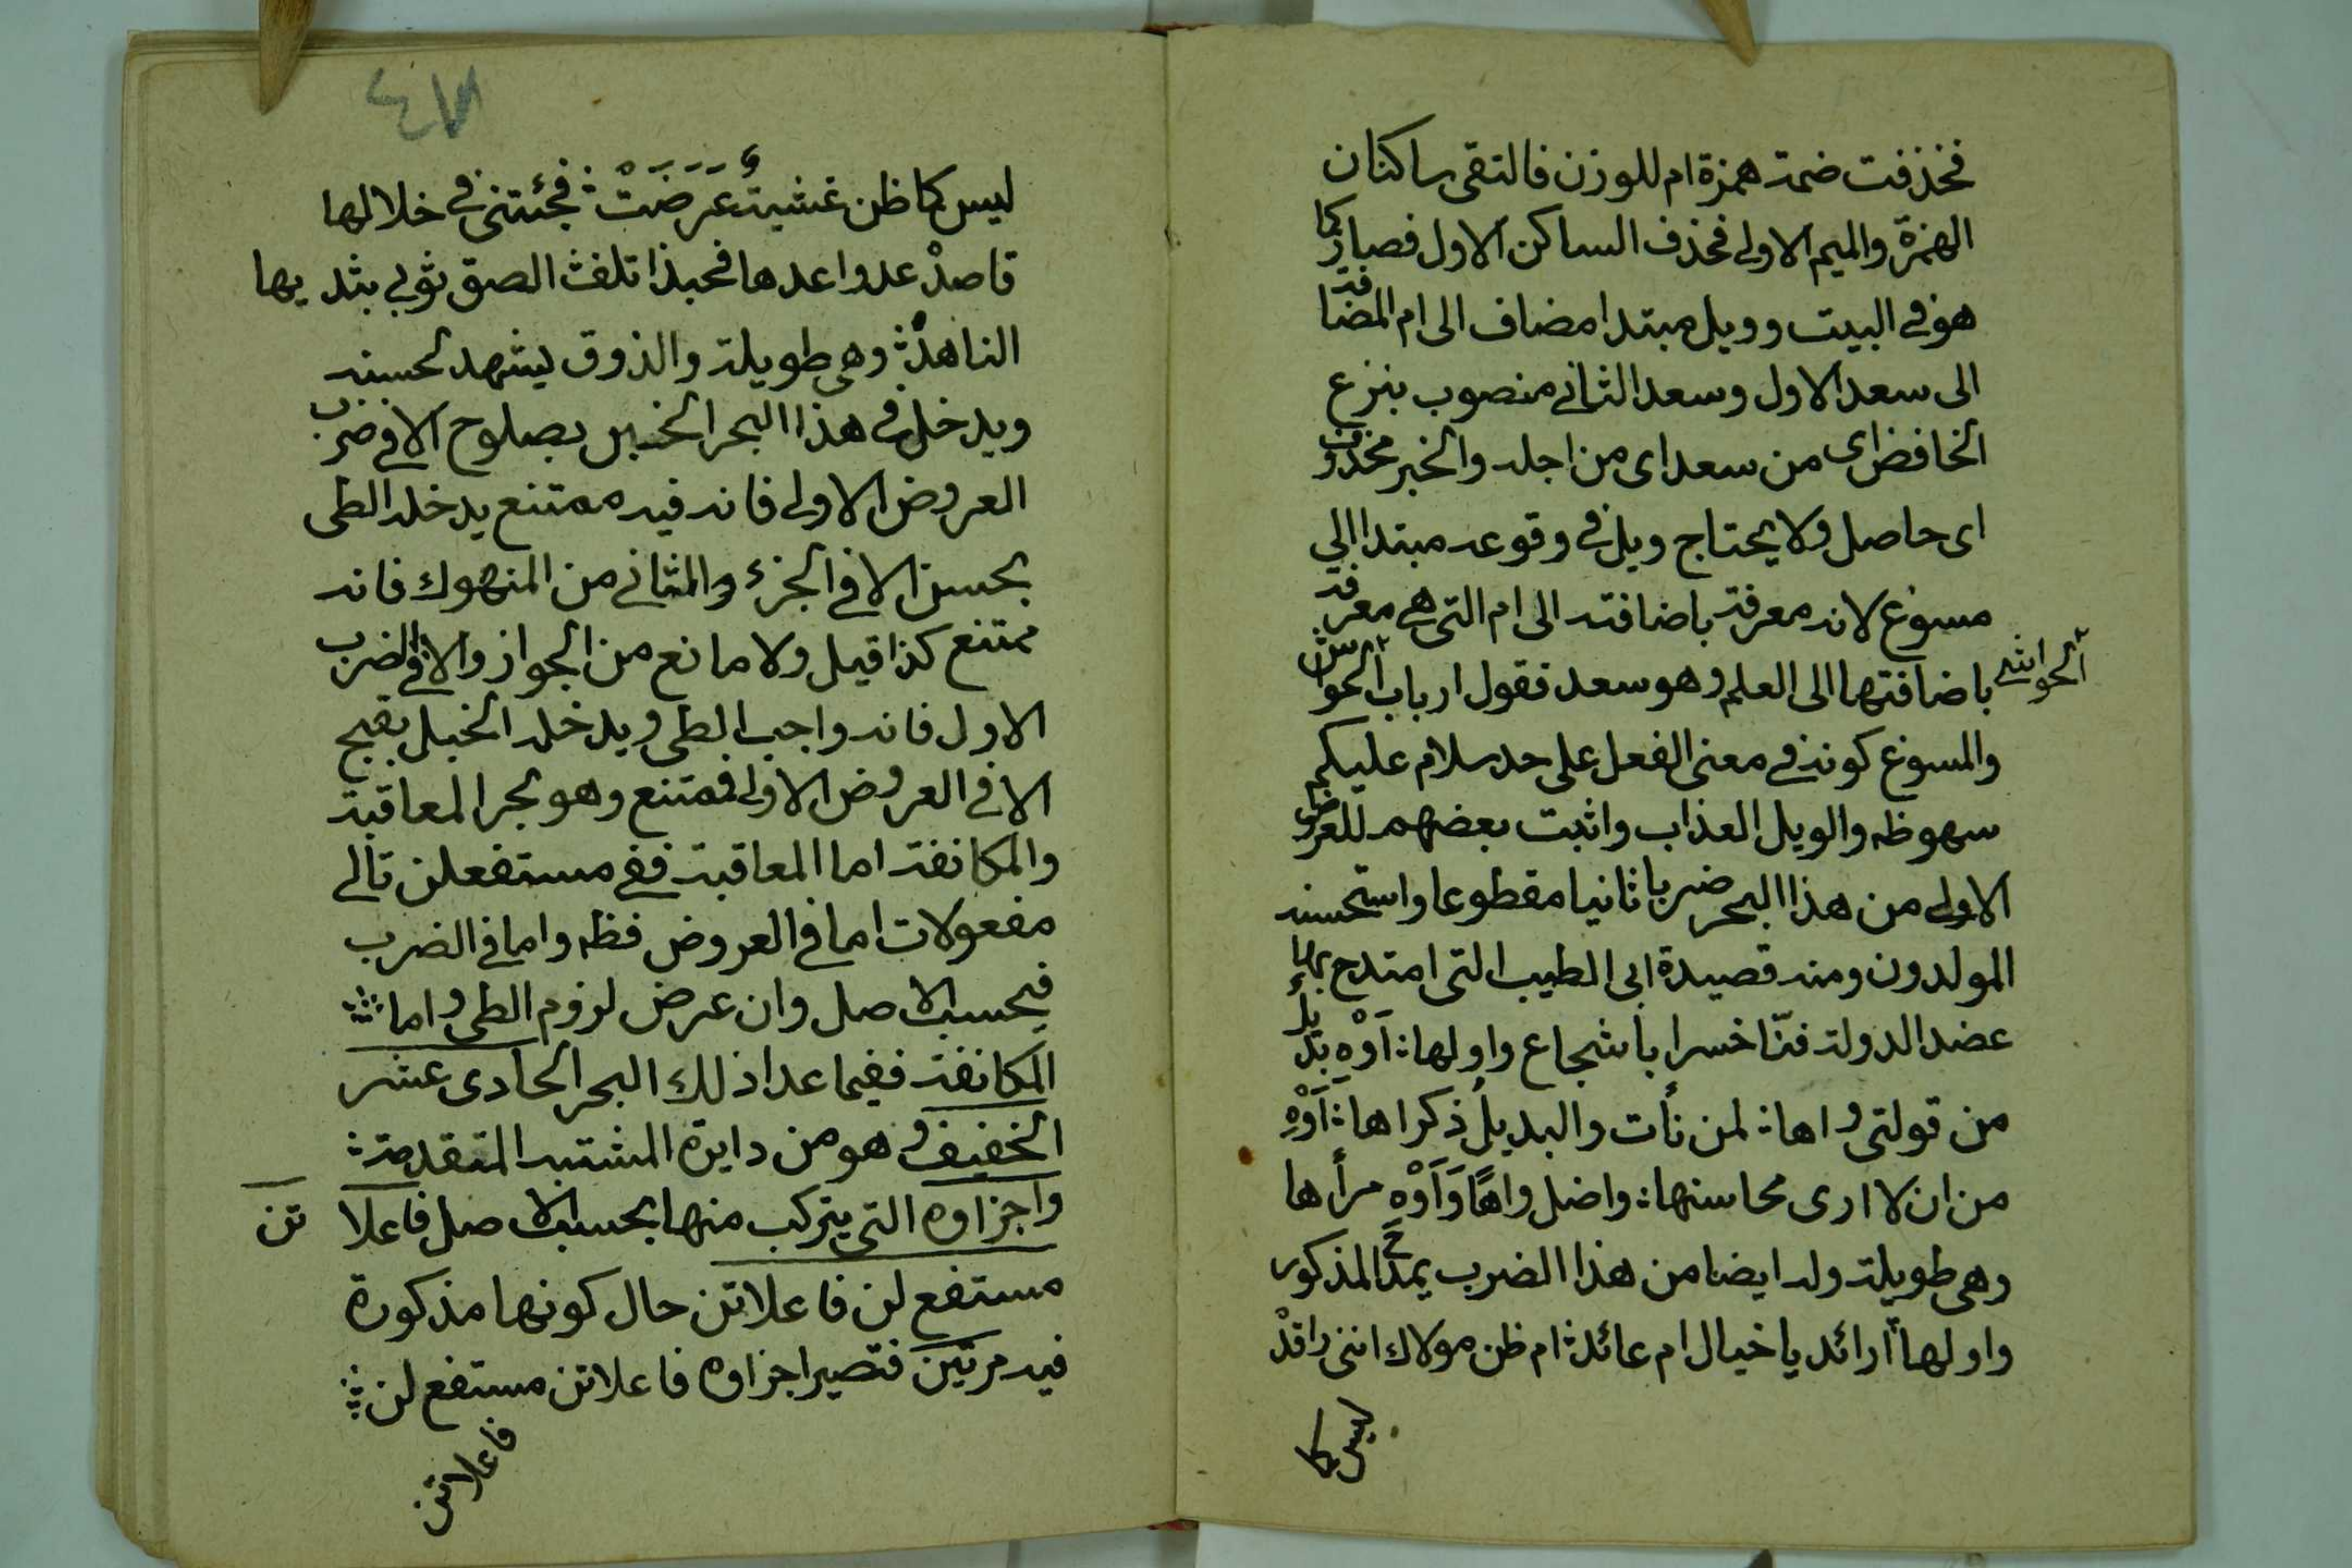 فحذفت ضمة همزة ام للوزن فالتقى ساكنان
الهمزة والميم الاولى فحذف الساكن الاول فصار كما
هو في البيت وويل مبتدا مضاف الى ام المضافة
الى سعد الاول وسعد الثاني منصوب بنزع
الخافض اى من سعد اى من اجله والخبر محذوف
اى حاصل ولا يحتاج ويل في وقوعه مبتدا الى
مسوغ لانه معرفة باضافته الى ام التي هي معرفة
باضافتها الى العلم وهو سعد فقول ارباب الحواش
الحواشى
والمسوغ كونه في معنى الفعل على حد سلام عليكم
سهو ظه والويل العذاب واثبت بعضهم للعروض
الاولى من هذا البحر ضربا ثانيا مقطوعا واستحسنه
المولدون ومنه قصيدة ابى الطيب التى امتدح بها
عضد الدولة فنّا خسرا با شجاع واولها: اَوْهِ بديل
من قولتى واها: لمن نأت والبديلُ ذكراها: اَوْهِ
من ان لا ارى محاسنها: واضل واهًا وَاَوْهِ مرأها
وهى طويلة وله ايضا من هذا الضرب يمدح المذكور
واولها أزائد يا خيال ام عائد: ام ظن مولاك اننى راقدْ
ليس كما
٤٧
ليس كما ظن غشيةُ عَرَضَتْ: فجئتنى في خلالها
قاصدْ عد واعدها فحبذا تلفث الصق ثوبى بثديها
الناهدْ: وهى طويلة والذوق يشهد لحسنه
ويدخل في هذا البحر الخبن بصلوح الا في ضرب
العروض الاولى فانه فيه ممتنع يدخله الطى
بحسن الا في الجزء والثانى من المنهوك فانه
ممتنع كذا قيل ولا مانع من الجواز والا في الضرب
الاول فانه واجب الطى ويدخله الخبل بقبح
الا في العروض الاولى فممتنع وهو بحر المعاقبة
والمكانفة اما المعاقبة ففى مستفعلن تالى
مفعولات اما في العروض فظه واما في الضرب
فبحسب الاصل وان عرض لزوم الطى واما
المكانفة ففيما عدا ذلك البحر الحادى عشر
الخفيف وهو من دايرة المشتبه المتقدمة:
واجزاوه التى يتركب منها بحسب الاصل فاعلا تن
مستفع لن فاعلاتن حال كونها مذكورة
فيه مرتين فتصير اجزاوه فاعلاتن مستفع لن
فاعلاتن